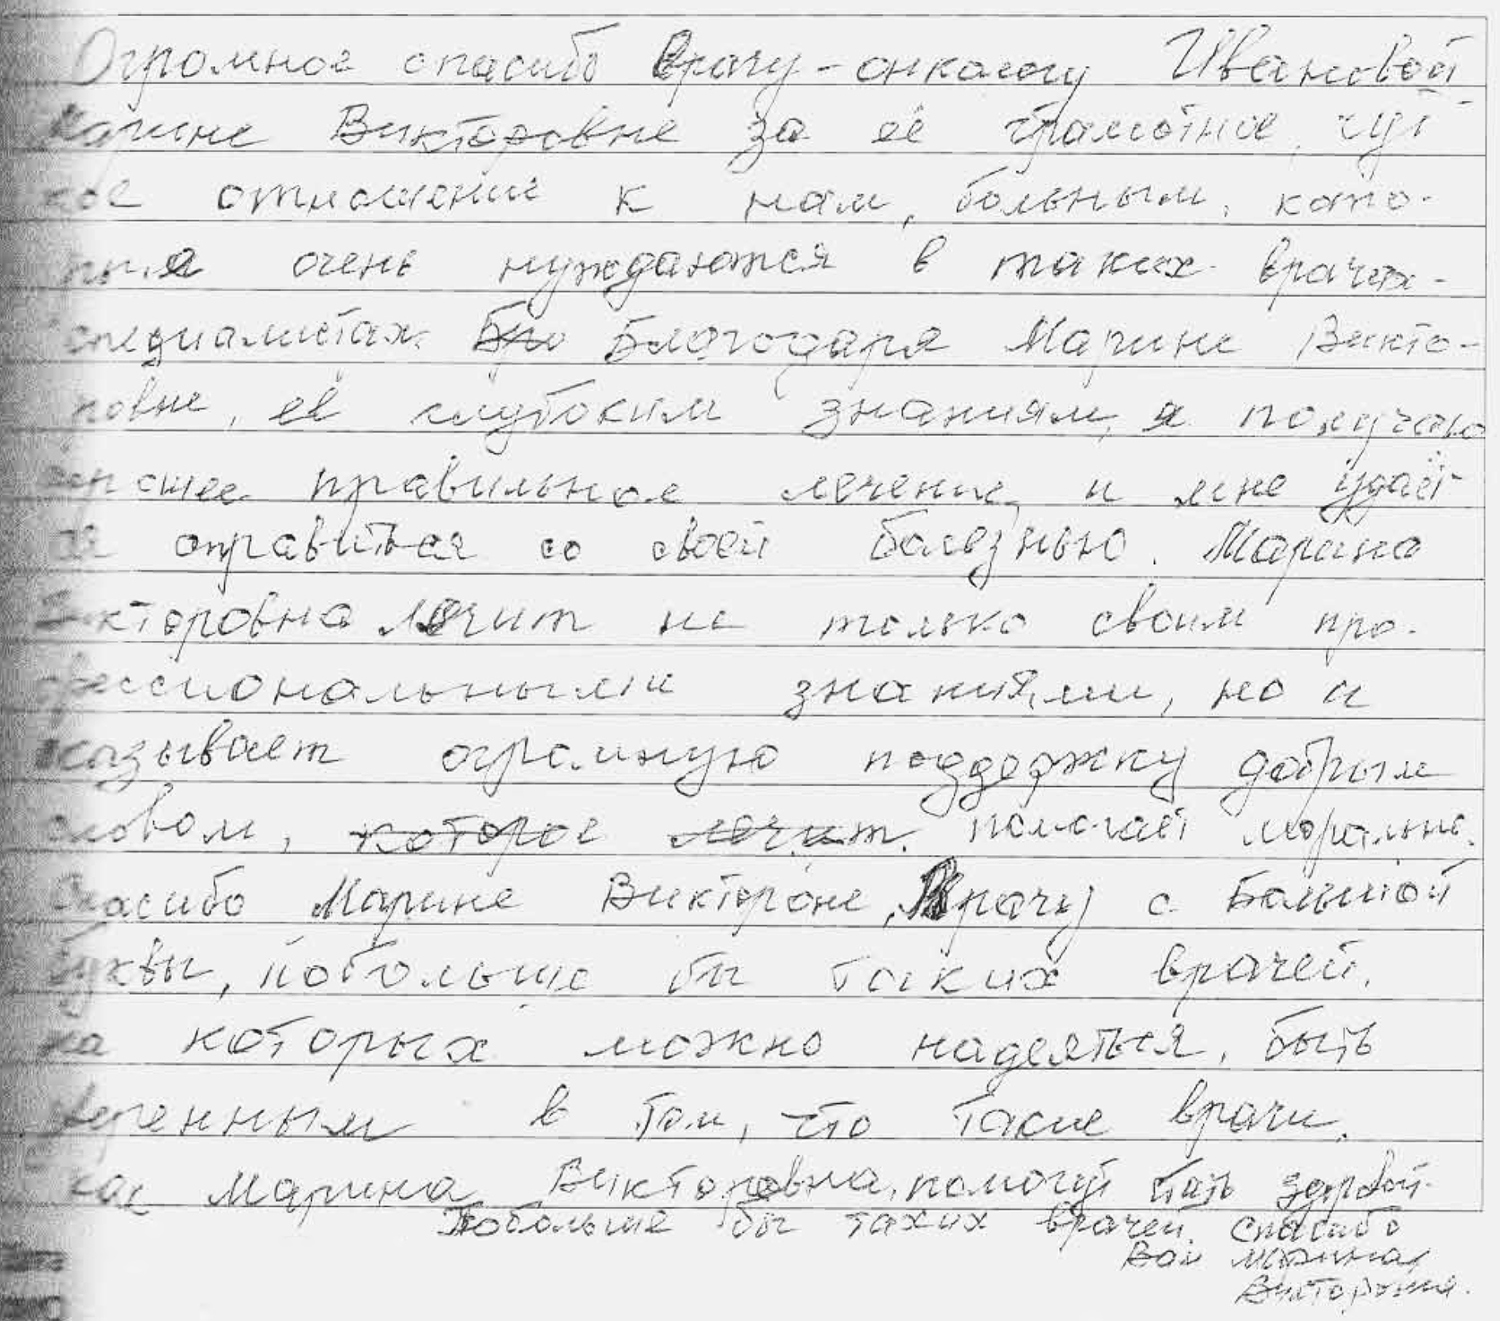 Огромное спасибо врачу-онкологу Ивановой
Марине Викторовне за её грамотное, чут
кое отношение к нам, больным, кото-
рые очень нуждаются в таких врачах-
специалистах. Бро Благодаря Марине Викто-
ровне, её глубоким знаниям, я получаю
хорошее правильное лечение, и мне удаёт
ся справиться со своей болезнью. Марина
Викторовна лечит не только своим про-
фессиональными знаниями, но и
оказывает огромную поддержку добрым
словом, которое лечит. помогает морально.
Спасибо Марине Викторовне, Врачу с Большой
буквы, побольше бы таких врачей,
на которых можно надеяться, быть
уверенным в том, что такие врачи,
как Марина Викторовна, помогут стать здоровой.
Побольше бы таких врачей. Спасибо
Вам Марина
Викторовна.